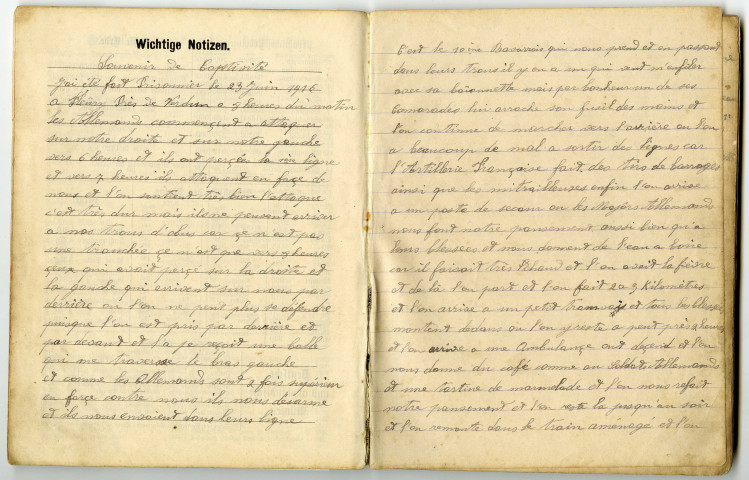 Wichtige Notizen.
Souvenir de Captivité
J'ai été fait Prisonnier le 23 Juin 1916
a Fleury Près de Verdun a 9 heures du matin
les Allemands commençent a attaquer
sur notre droite et sur notre gauche
vers 6 heures et ils ont perçés la 1ère ligne
et vers 7 heures ils attaquent en façe de
nous et l'on soutient très bien l'attaque
c'est très dur mais ils ne peuvent arriver
a nos trous d'obus car ce n'est pas
une tranchée ce n'est que vers 9 heures
ceux qui avait perçé sur la droite et
la gauche qui arivent sur nous par
derrière ou l'on ne peut plus se défendre
puisque l'on est pris par derrière et
par devant et la je reçoit une balle
qui me traverse le bras gauche
et comme les Allemands sont 2 fois supérieur
en força contre nous ils nous désarme
et ils nous envoient dans leurs ligne
C'est le Bavarrois qui nous prend et en passant
dans leurs trous il y en a un qui veut m'enfiler
avec sa baïonnette mais par bonheur un de ses
Camarades lui arrache son fusil des mains et
l'on continue de marcher vers l'arrière ou l'on
a beaucoup de mal a sortir des lignes car
l'Artillerie Française fait des tirs de barrages
ainsi que les mitrailleuses enfin l'on arrive
a un poste de secour ou les Majors Allemands
nous font notre pansement aussi bien qu'a
leurs blessées et nous donnent de l'eau a boire
car il faisait très Chaud et l'on avait la fièvre
et de la l'on part et l'on fait 2 a 3 Kilomètres
et l'on arrive a un petit tramway et tous les blessés
montent dedans ou l'on y reste a peut près 2 heures
et l'on arrive a une Ambulance ont decend et l'on
nous donne du café comme au soldats Allemands
et une tartine de marmelade et l'on nous refait
notre pansement et l'on reste la jusqu'au soir
et l'on remonte dans le train amenagé et l'on